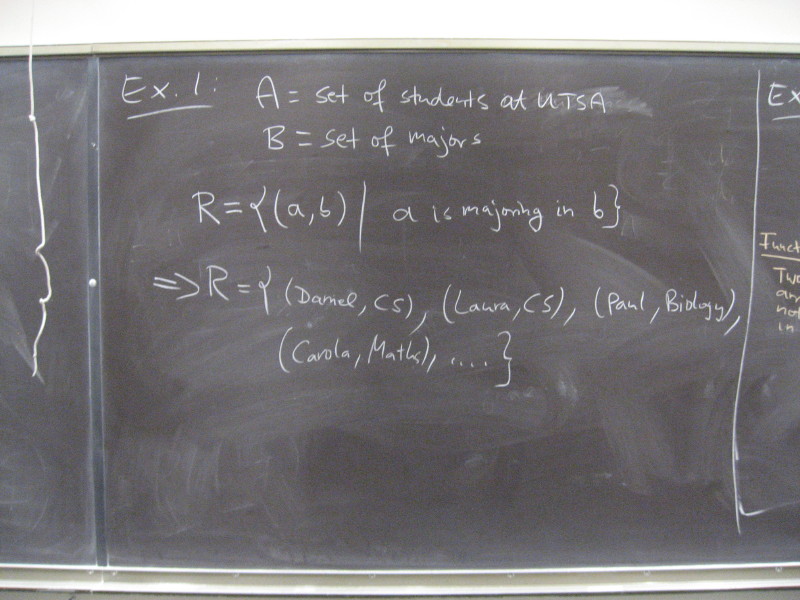 Ex. 1: A = set of students at UTSA
B = set of majors
R = {(a,b) | a is majoring in b}
=> R = { (Daniel, CS), (Laura, CS), (Paul, Biology),
(Carola, Maths), .... }
Ex
Funct
Two
an
not
in